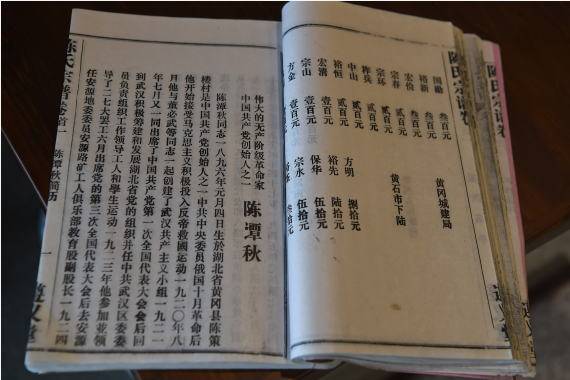 陈氏宗谱卷
国勛 叁百元 黄冈城建局
裕新 叁百元
宏俭
宗春 贰百元 黄石市下陆
宗环 贰百元
贰百元
中山 贰百元
裕恒 方明 捌拾元
宏清 壹百元 裕先 陆拾元
宗山 壹百元 保华 伍拾元
方金 壹百元 宗永 伍拾元
叁拾元
伟大的无产阶级革命家
中国共产党创始人之一
陈潭秋
陈潭秋同志一八九六年元月四日生於湖北省黄冈县陈策
楼村是中国共产党创始人之一中共中央委员俄国十月革命后
他开始接受马克思主义积极投入反帝救國运动一九二○年八
月他与董必武等同志一起创建了武汉共产主义小组一九二一
年七月又一同出席了中国共产党第一次全国代表大会会后回
到武汉积极筹建和发展湖北省党的组织并任中共武汉区委委
员负责组织工作领导工人和學生运动一九二三年他参加並领
导了二七大罢工六月出席党的第三次全国代表大会后去安源
任安源地委委员安源路矿工人俱乐部教育股副股长一九二四
陈氏宗谱卷首一 陈潭秋简历 一 道义堂